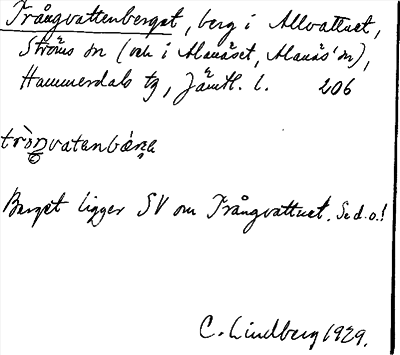 Trångvattenberget, berg i Allvattnet,
Ströms sn (och i Alanäset, Alanäs' sn),
Hammerdals tg, Jämtl. l. 206
Berget ligger SV om Trångvattnet. Se d.o.!
C. Lindberg 1929.